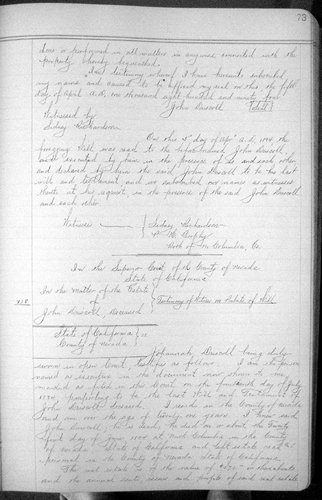 73
done or performed in all matters in any wise connected with the
property hereby bequeathed.
In testimony whereof I have hereunto subscribed
my name and caused to be affixed my seal on this the fifth
day of April A.D. one thousand eight hundred and ninety four
John Driscoll [Seal]
Witnessed by
Sidney Richardson
On this 5th day of Apr' A.D. 1894 the
foregoing Will was made to the before named John Driscoll,
and executed by him in the presence of us and each other
and declared by him the said John Driscoll to be the last
will and testament, and we subscribed our names as witnesses
thereto at his request, in the presence of the said John Driscoll
and each other
Witnesses
Sidney Richardson
Both of N Columbia, Ca.
In the Superior Court of the County of Nevada
State of California
In the Matter of the Estate
of
John Driscoll, Deceased
Testimony of Witness on Probate of Will
State of California
County of Nevada
ss
Driscoll being duly
sworn in open Court, testifies as follows I am the person
named as in the document now shown to me
marked as filed in this Court on the fourteenth day of July
1894, purporting to be the last Will and Testament of
John Driscoll deceased I reside in the County of Nevada
and am over the age of twenty one years. I knew said
John Driscoll, he is dead, he died on or about the twenty
first day of June 1894 at North Columbia in the County
of Nevada State of California and left estate
personal in the County of Nevada State of California
The real estate is of the value of
and the annual rent, issues and profits of said real estate